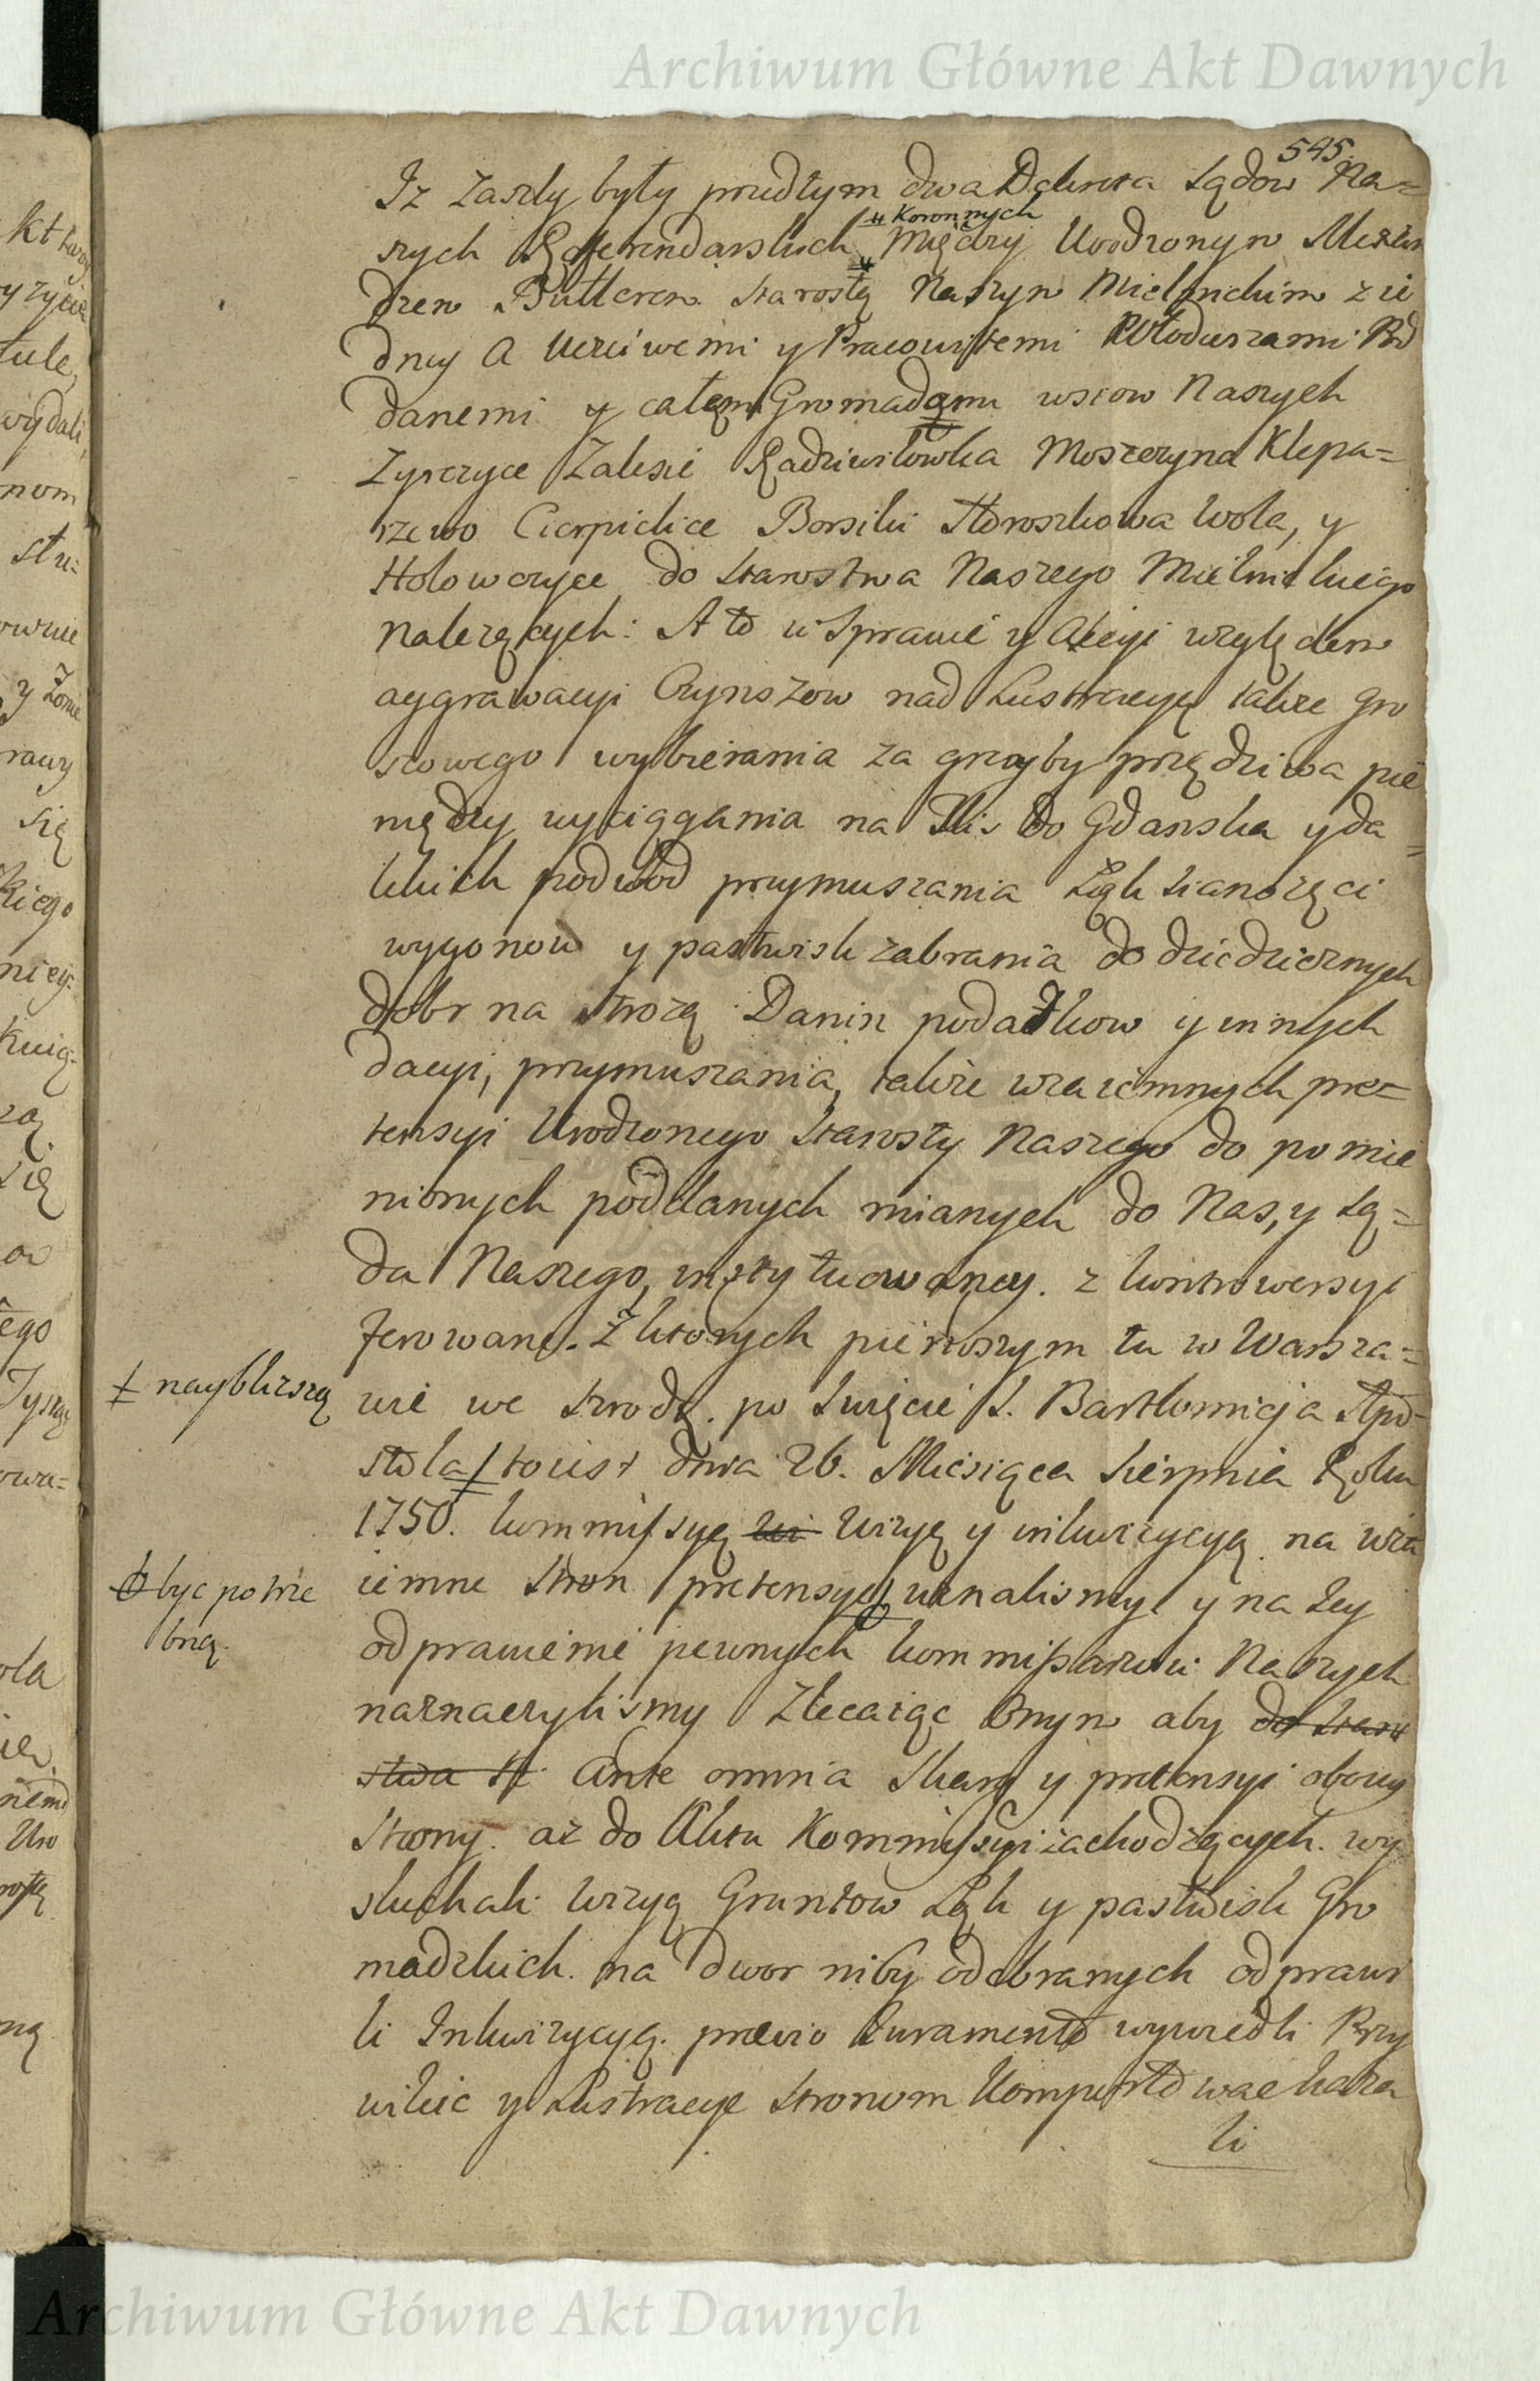 Archiwum Główne Akt Dawnych
545.
Iz zaszły były przedtym dwa Dekreta Sądow Na=
szych Referendarskich ⧺ Koronnych Między Urodzonym Alexan
drem Buttlerem Starostą Naszym Mielnickim z ie
dney A Uczciwemi y Pracowitemi Włoduszami Pod
danemi y całemi Gromadami wsiow Naszych
Zyrczyce Zalesie Radziwiłowka Moszczyna Klepa=
czewo Cierpidice Borsuki Horoszkowa Wola, y
Hołowczyce do Starostwa Naszego Mielnickiego
należących: A to w Sprawie y Akcyi względem
aggrawacyi Czynszow nad Lustracyę także Gro
szowego wybierania za grzyby przędziwa pie
niędzy wyciągania na Flis do Gdańska y da
lekich podwod przymuszania Łąk sianożęci
wygonow y pastwisk zabrania do dziedzicznych
dobr na strożą Danin podatkow y innych
dacyi, przymuszania, także wzaiemnych pre=
tensyi Urodzonego Starosty Naszego do pomie
nionych poddanych mianych do Nas, y Są=
du Naszego, instytuowaney. z kontrowersyi
ferowane. Z ktorych pierwszym tu w Warsza=
wie we Srodę. po Swięcie S. Bartłomieja Apo=
stoła ⧧ toiest dnia 26. Miesiąca Sierpnia Roku
⧧ naybliższą
1750. kommissyą wi wizyą y inkwizycyą na wza
iemne Stron pretensye uznalismy y na tey
być potrze
bną.
odprawienie pewnych kommissarzow Naszych
naznaczylismy Zlecaiąc Onym aby do Staro
stwa ante omnia Skargi y pretensyi oboiey
Strony. aż do Aktu Kommissyi zachodzących. wy
słuchali wizyą Gruntow Łąk y pastwisk Gro
madzkich. na dwor niby odebranych odprawi
li Inkwizycyą. praevio Iuramento wywiedli Przy
wileie y Lustracye Stronom komportować kaza
li
Archiwum Główne Akt Dawnych